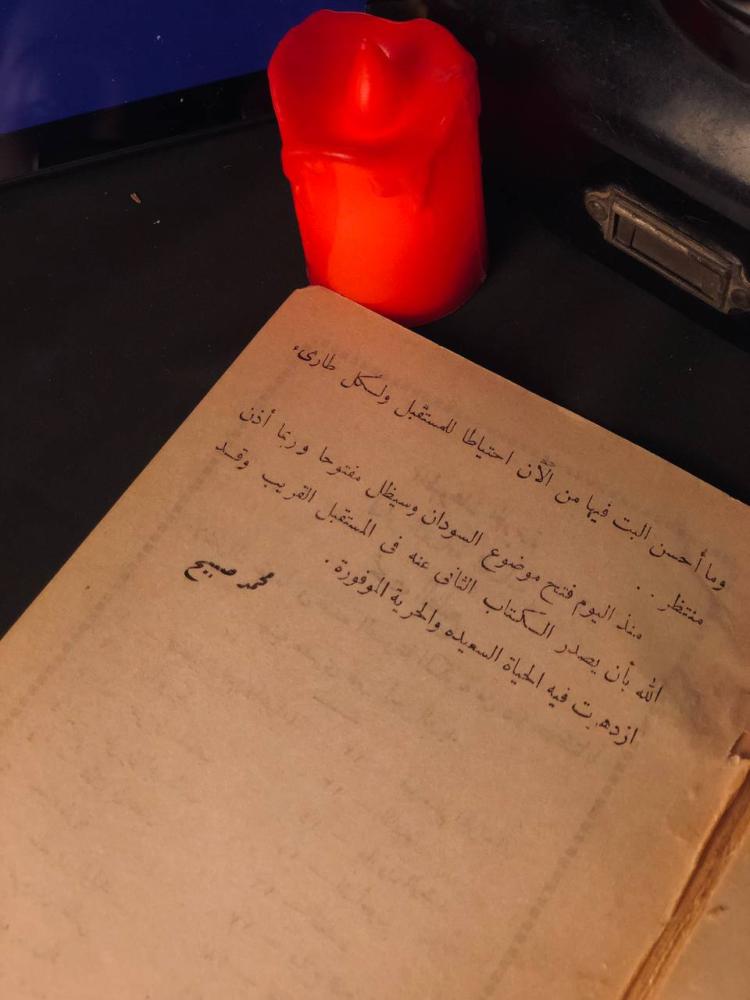 وما أحسن البت فيها من الآن احتياطا للمستقبل ولكل طارىء
منتظر . .
منذ اليوم فتح موضوع السودان وسيظل مفتوحا وربما أذن
الله بأن يصدر الكتاب الثانى عنه فى المستقبل القريب وقد
ازدهرت فيه الحياة السعيده والحرية الموفورة .
محمد صبيح